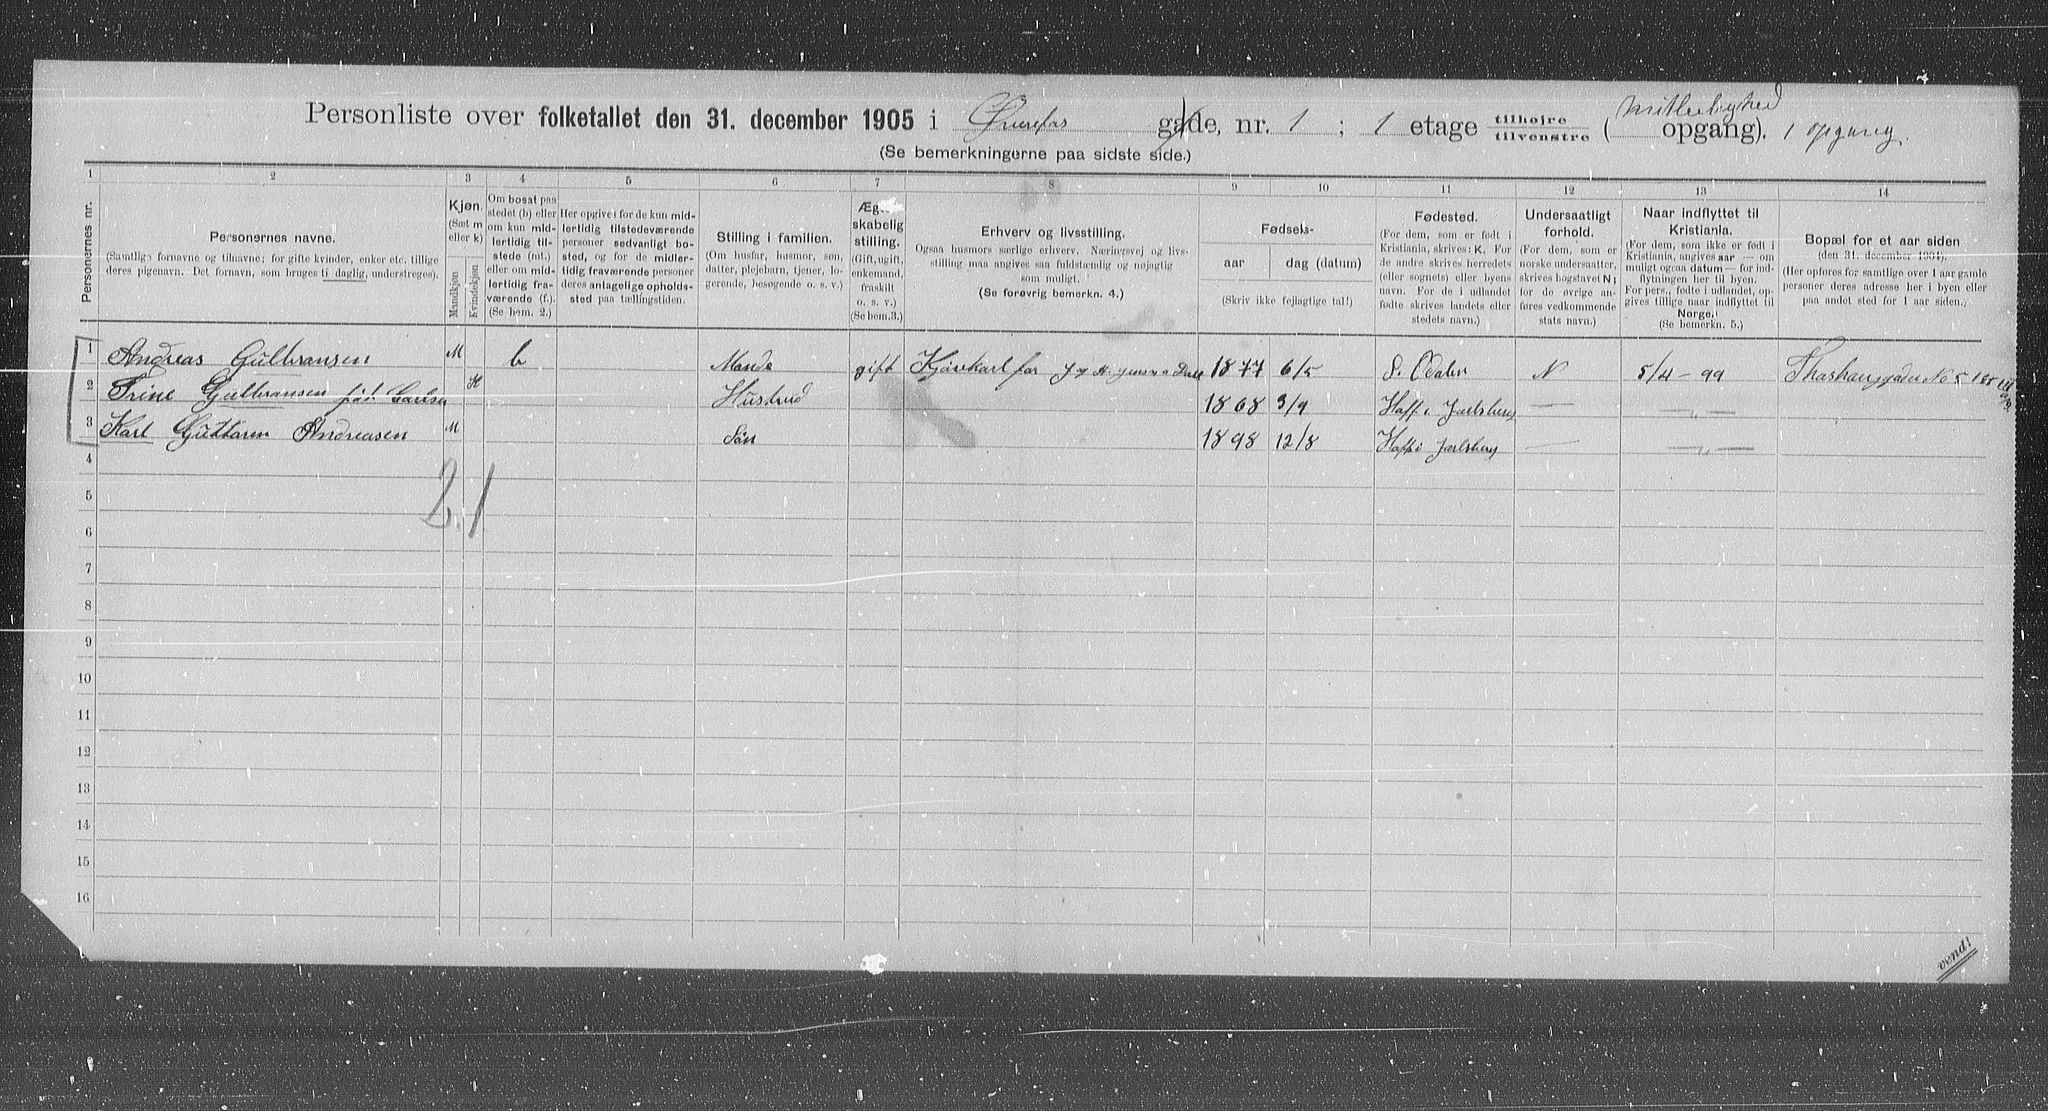 Personliste over folketallet den 31. december 1905 i gade, nr. 1 ; 1 etage tilhøjre tilvenstre ( opgang). 1 opgang.
(Se bemerkningerne paa sidste side.)
1 2 3 4 5 6 7 8 9 10 11 12 13 14
Personernes nr.
Personernes navne.
(Samtlige fornavne og tilnavne; for gifte kvinder, enker etc. tillige
deres pigenavn. Det fornavn, som bruges til daglig, understreges).
Kjøn.
(Sæt m
eller k)
Mandkjøn
Kvindekjøn
Om bosat paa
stedet (b) eller
om kun mid-
lertidig til-
stede (mt.)
eller om mid-
lertidig fra-
værende (f.).
(Se bem. 2.)
Her opgives for de kun mid-
lertidig tilstedeværende
personer sedvanlig bo-
sted, og for de midler-
tidig fraværende personer
deres anlagelige opholds-
sted paa tællingstiden.
Stilling i familien.
(Om husfar, husmor, søn,
datter, plejebarn, tjener, lo-
gerende, besøgende o. s. v.)
Æg-
skabelig
stilling.
(Gift, ugift,
enkemand,
fraskilt
o. s. v.)
(Se bem.3.)
Erhverv og livsstilling.
Ogsaa husmors særlige erhverv. Næringsvej og livs-
stilling maa angives saa fuldstændig og nøjagtig
som muligt.
(Se forøvrig bemerkn. 4.)
Fødsels-
aar
dag (datum)
(Skriv ikke fejlagtige tal!)
Fødested.
(For dem, som er født i
Kristiania, skrives: K. For
de andre skrives herredets
(eller sognets) eller byens
navn. For de i udlandet
fødte skrives landets eller
stedets navn.)
Undersaatligt
forhold.
(For dem, som er
norske undersaatter,
skrives bogstavet N;
for de øvrige an-
føres vedkommende
stats navn.)
Naar indflyttet til
Kristiania.
(For dem, som ikke er født i
Kristiania, angives aar — om
muligt ogsaa datum — for ind-
flytningen her til byen.
For pers., fødte i udlandet, op-
gives tillige naar indflyttet til
Norge.)
(Se bemerkn. 5.)
Bopæl for et aar siden
(den 31. december 1904).
(Her opføres for samtlige over 1 aar gamle
personer deres adresse her i byen eller
paa andet sted for 1 aar siden.)
1 Andreas Gulbransen M b Mande gift Kjørekarl for 1877 6/5 N 5/4 - 99
2 Trine Gulbransen K Hustrud 1868 3/9 Haff i Jarlsberg — —„—
3 Karl Guttorm Andreasen M Søn 1898 12/8 Haff i Jarlsberg — —„—
4
2. 1
5
6
7
8
9
10
11
12
13
14
15
16
vend!